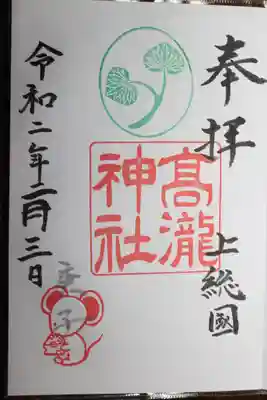 奉拝
上総國
髙瀧
神社
令和二年二月三日